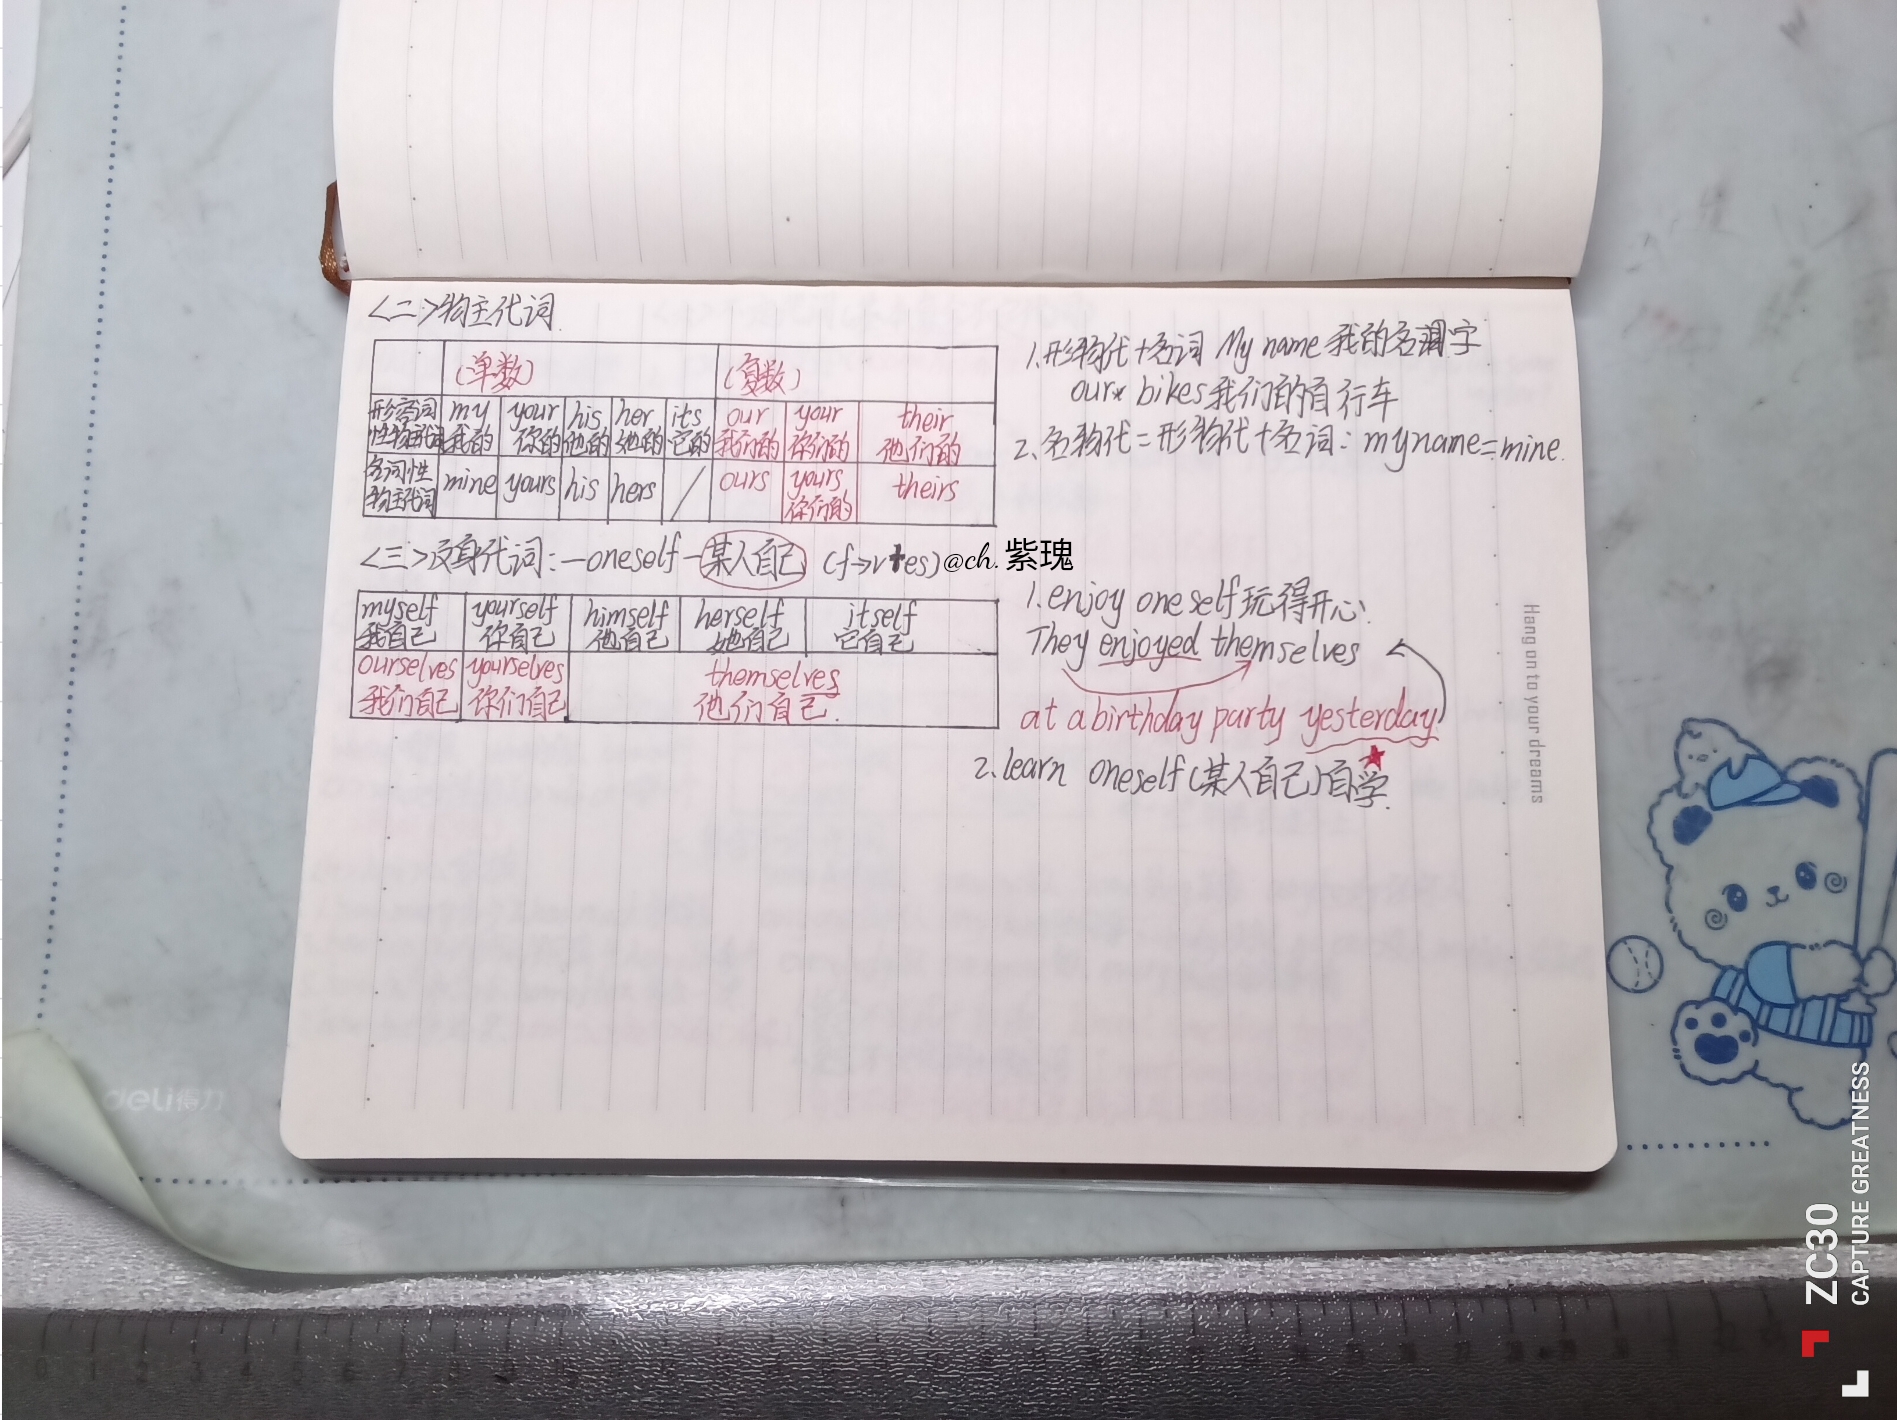 <二>物主代词
(单数) (复数)
形容词性物主代词 my 我的 your 你的 his 他的 her 她的 its 它的 our 我们的 your 你们的 their 他们的
名词性物主代词 mine yours his hers / ours yours 你们的 theirs
1.形物代+名词 My name 我的名字
our bikes 我们的自行车
2.名物代=形物代+名词: my name=mine.
<三>反身代词:—oneself—某人自己 (f→v+es)@ch.紫瑰
myself 我自己 yourself 你自己 himself 他自己 herself 她自己 itself 它自己
ourselves 我们自己 yourselves 你们自己 themselves 他们自己.
1.enjoy oneself玩得开心:
They enjoyed themselves
at a birthday party yesterday
2.learn oneself(某人自己)自学.
Hang on to your dreams
deli得力
ZC30
CAPTURE GREATNESS
0 1 2 3 4 5 6 7